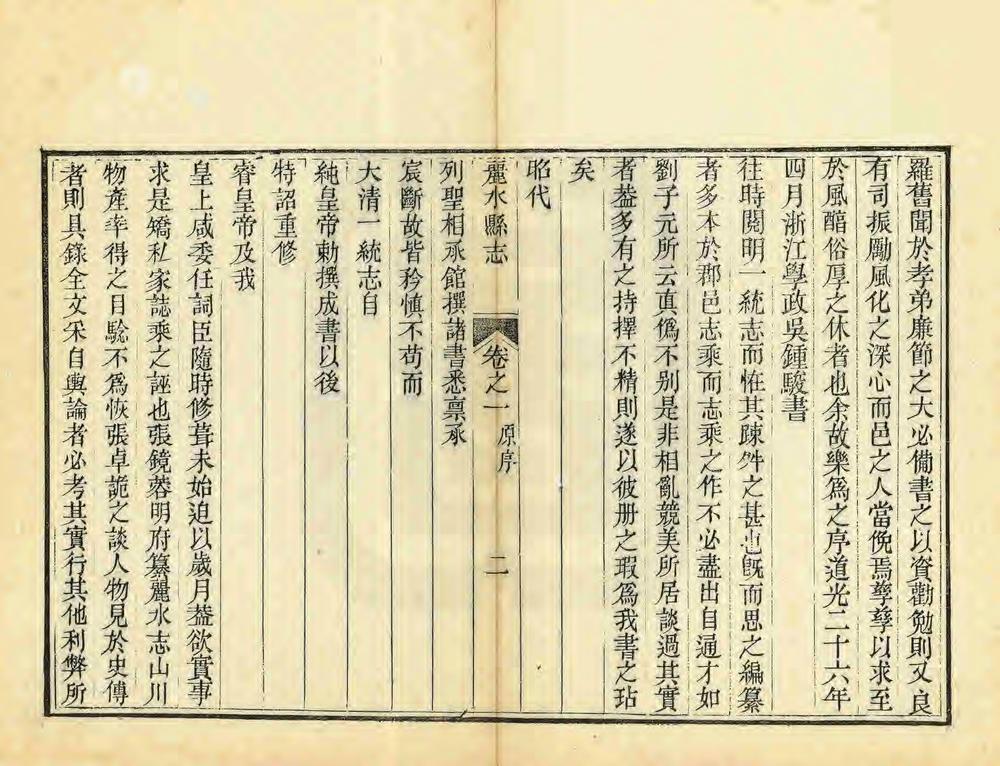 羅舊聞於孝弟廉節之大必備書之以資勸勉則又良
有司振勵風化之深心而邑之人當俛焉孳孳以求至
於風醇俗厚之休者也余故樂爲之序道光二十六年
四月浙江學政吳鍾駿書
往時閱明一統志而恠其疎舛之甚也旣而思之編纂
者多本於郡邑志乘而志乘之作不必盡出自通才如
劉子元所云眞僞不別是非相亂競美所居談過其實
者葢多有之持擇不精則遂以彼册之瑕爲我書之玷
矣
昭代
麗水縣志 卷之一 原序 二
列聖相承館撰諸書悉禀承
宸斷故皆矜愼不苟而
大清一統志自
純皇帝勅撰成書以後
特詔重修
睿皇帝及我
皇上咸委任詞臣隨時修葺未始迫以歲月葢欲實事
求是矯私家誌乘之誣也張鏡蓉明府纂麗水志山川
物產率得之目驗不爲恢張卓詭之談人物見於史傳
者則具錄全文采自輿論者必考其實行其他利弊所